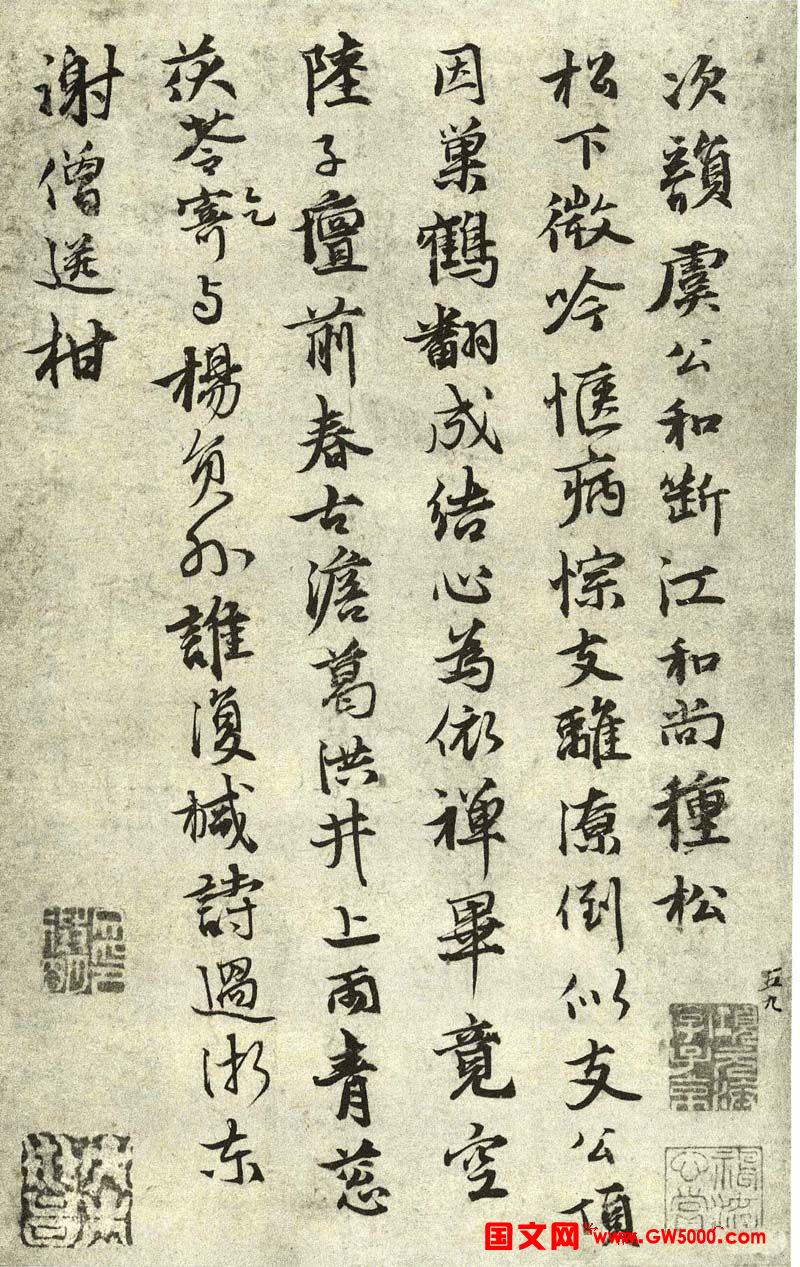 次韻虞公和斷江和尚種松
松下微吟愜病悰支離潦倒似支公頂
因巢鶴翻成結心為依禪畢竟空
陸子壇前春古澹葛洪井上雨青葱
茯苓寄乞与楊員外誰復椷詩過浙东
謝僧送柑
五九
国文网 www.GW5000.com